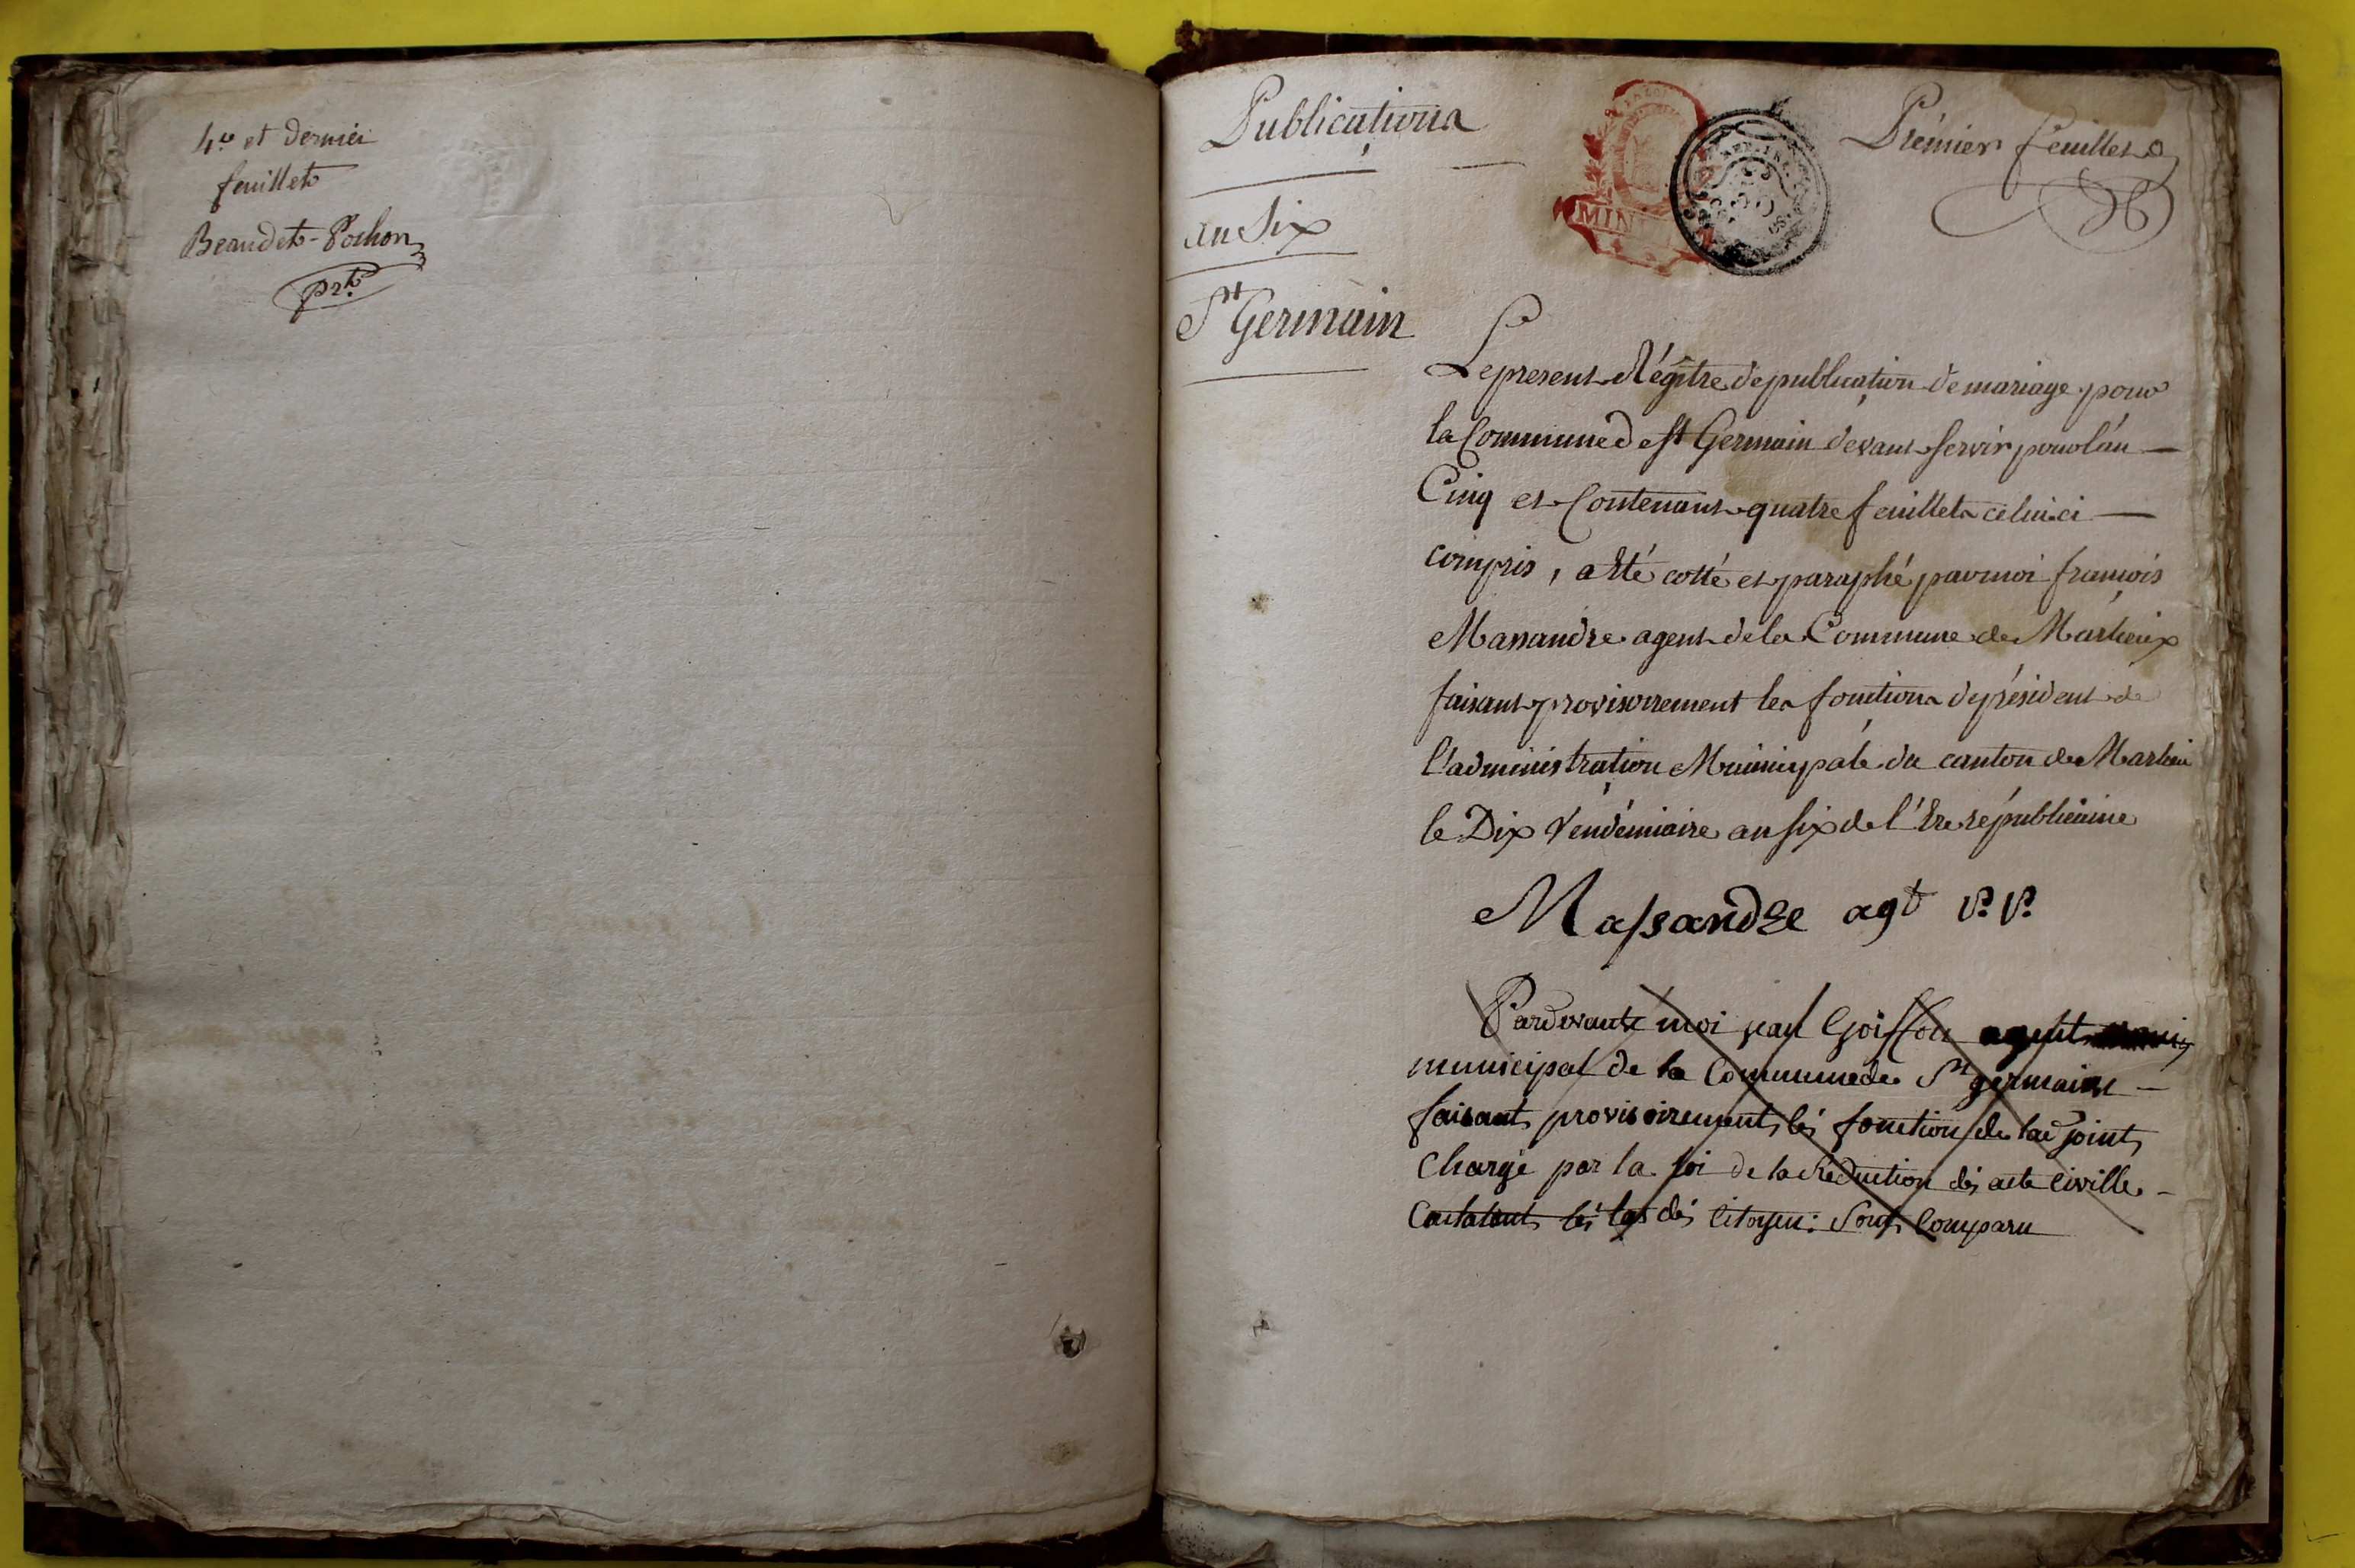 4e et dernier
feuillet
Beaudet-Pochon
prt
Publications
an Six
St Germain
Premier feuillet
MIN
Le present Régître de publication de mariage pour
la Commune de St Germain devant servir pour l'an
Cinq et Contenant quatre feuillets celui ci
compris, a été cotté et paraphé par moi françois
Massandre agent de la Commune de Marlieux
faisant provisoirement les fonctions de président de
l'administration Municipale du canton de Marlieu
le Dix Vendémiaire an six de l'Ere républicaine
Massandre agt P. P.
Pardevante moi jean Goiffon agent
municipal de la Commune de St germain
faisant provisoirement lés fonction de lad joint
Chargé par la loi de la Réduction dés acte Civille
lés dés Citoyen: Sont Comparu